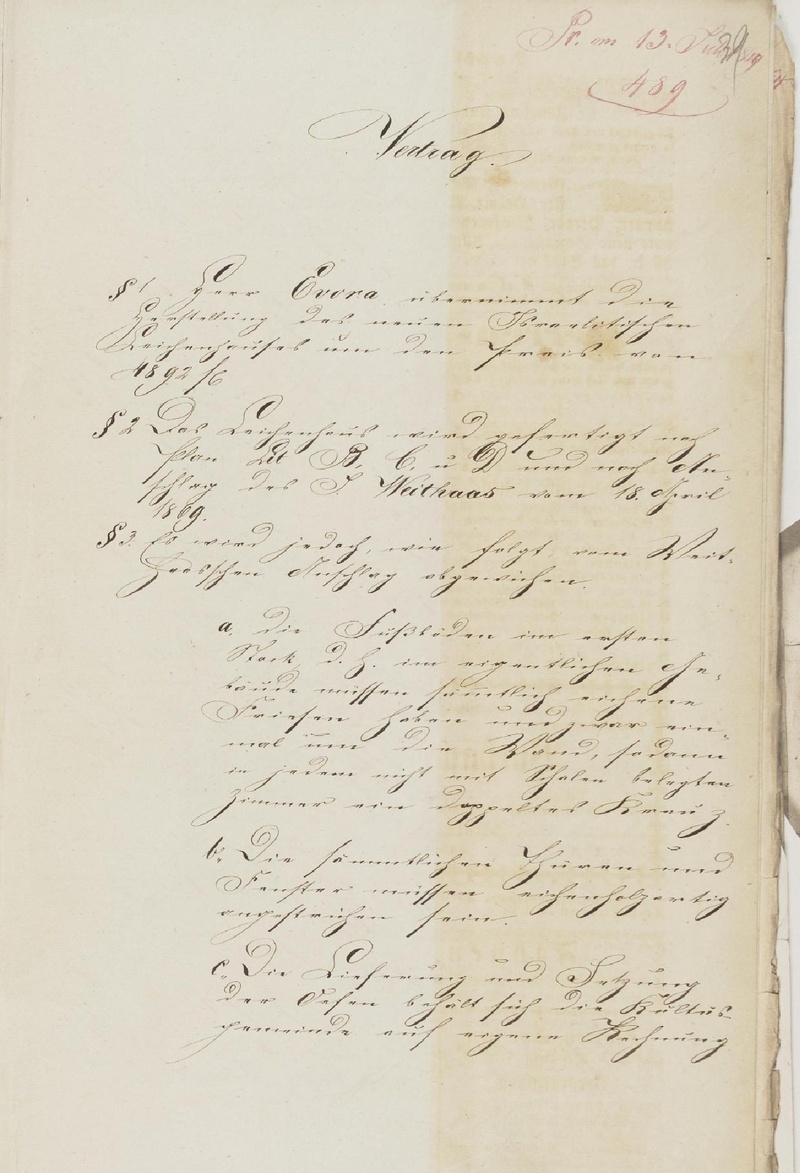 Pr. am 13. Juli
489
Vertrag.
§ 1. Herr Evora übernimmt die
Herstellung des neuen Israelitischen
Leichenhauses um den Preis von
4892 fl
§ 2 Das Leichenhaus wird gefertigt nach
Plan Lit B, C, u D und nach An-
schlag des J Weithaas vom 18. April
1869.
§ 3. Es wird jedoch, wie folgt, vom Weit-
haas'schen Anschlag abgewichen.
a. die Fußböden im ersten
Stock, d. h. im eigentlichen Ge-
bäude müssen sämtlich eichene
Friesen haben und zwar ein-
mal um die Wand, sodann
in jedem nicht mit Schalen belegten
Zimmer ein doppeltes Kreuz.
b. Die sämmtlichen Thüren und
Fenster müssen eichenholzartig
angestrichen sein.
c. Die Lieferung und Setzung
der Oefen behält sich die Kultus-
gemeinde auf eigene Rechnung